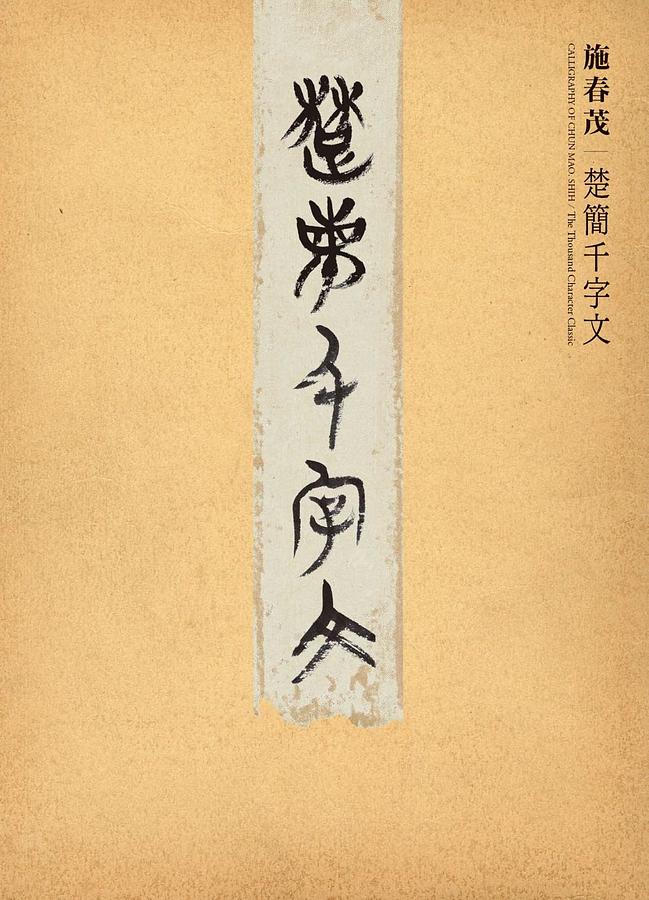 施春茂｜楚簡千字文
CALLIGRAPHY OF CHUN MAO. SHIH / The Thousand Character Classic
楚柬千字文